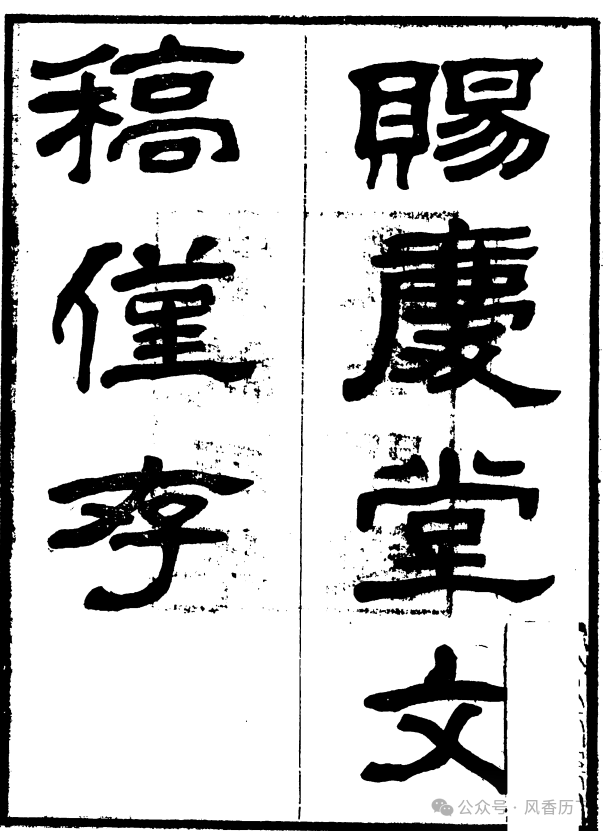 賜慶堂文
稿僅存
公众号 · 风香历